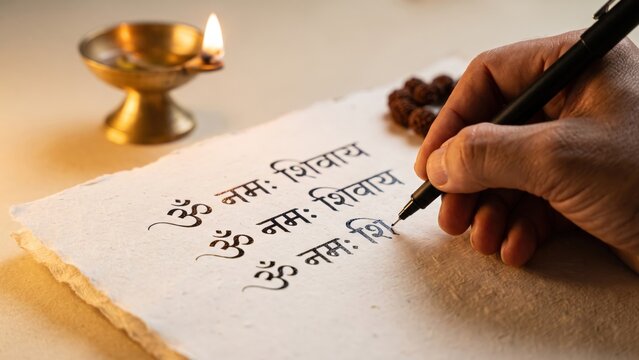 ॐ नमः शिवाय
ॐ नमः शिवाय
ॐ नमः शि